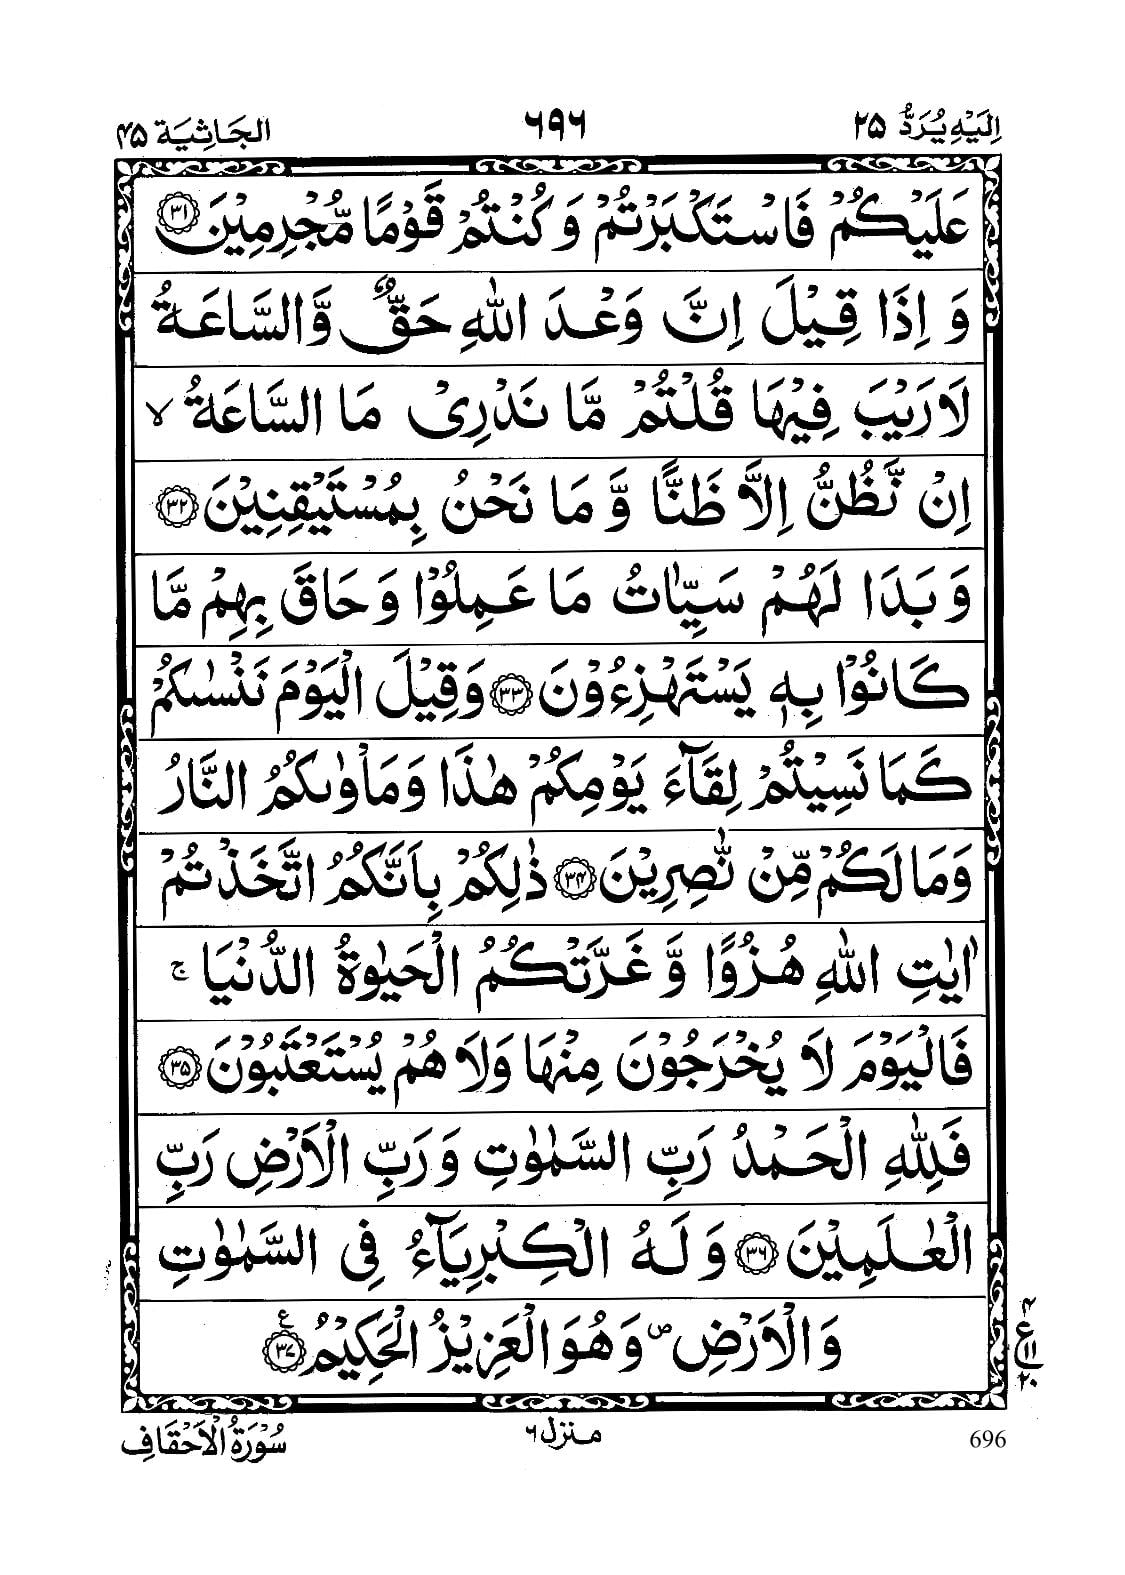 اِلَيْهِ يُرَدُّ ۲۵ ۶۹۶ الجَاثِيَة ۴۵
عَلَيْكُمْ فَاسْتَكْبَرْتُمْ وَكُنْتُمْ قَوْمًا مُّجْرِمِيْنَ ۳۱
وَ اِذَا قِيْلَ اِنَّ وَعْدَ اللّٰهِ حَقٌّ وَّالسَّاعَةُ
لَا رَيْبَ فِيْهَا قُلْتُمْ مَّا نَدْرِيْ مَا السَّاعَةُ ۙ
اِنْ نَّظُنُّ اِلَّا ظَنًّا وَّ مَا نَحْنُ بِمُسْتَيْقِنِيْنَ ۳۲
وَ بَدَا لَهُمْ سَيِّاٰتُ مَا عَمِلُوْا وَ حَاقَ بِهِمْ مَّا
كَانُوْا بِهٖ يَسْتَهْزِءُوْنَ ۳۳ وَقِيْلَ الْيَوْمَ نَنْسٰىكُمْ
كَمَا نَسِيْتُمْ لِقَآءَ يَوْمِكُمْ هٰذَا وَمَاْوٰىكُمُ النَّارُ
وَمَا لَكُمْ مِّنْ نّٰصِرِيْنَ ۳۴ ذٰلِكُمْ بِاَنَّكُمُ اتَّخَذْتُمْ
اٰيٰتِ اللّٰهِ هُزُوًا وَّ غَرَّتْكُمُ الْحَيٰوةُ الدُّنْيَا ۚ
فَالْيَوْمَ لَا يُخْرَجُوْنَ مِنْهَا وَلَا هُمْ يُسْتَعْتَبُوْنَ ۳۵
فَلِلّٰهِ الْحَمْدُ رَبِّ السَّمٰوٰتِ وَ رَبِّ الْاَرْضِ رَبِّ
الْعٰلَمِيْنَ ۳۶ وَ لَهُ الْكِبْرِيَآءُ فِي السَّمٰوٰتِ
وَ الْاَرْضِ ۪ وَهُوَ الْعَزِيْزُ الْحَكِيْمُ ۳۷ ع
۴ ع ۱۱ ۲۰
696 منزل ۶ سُوْرَةُ الْاَحْقَافِ